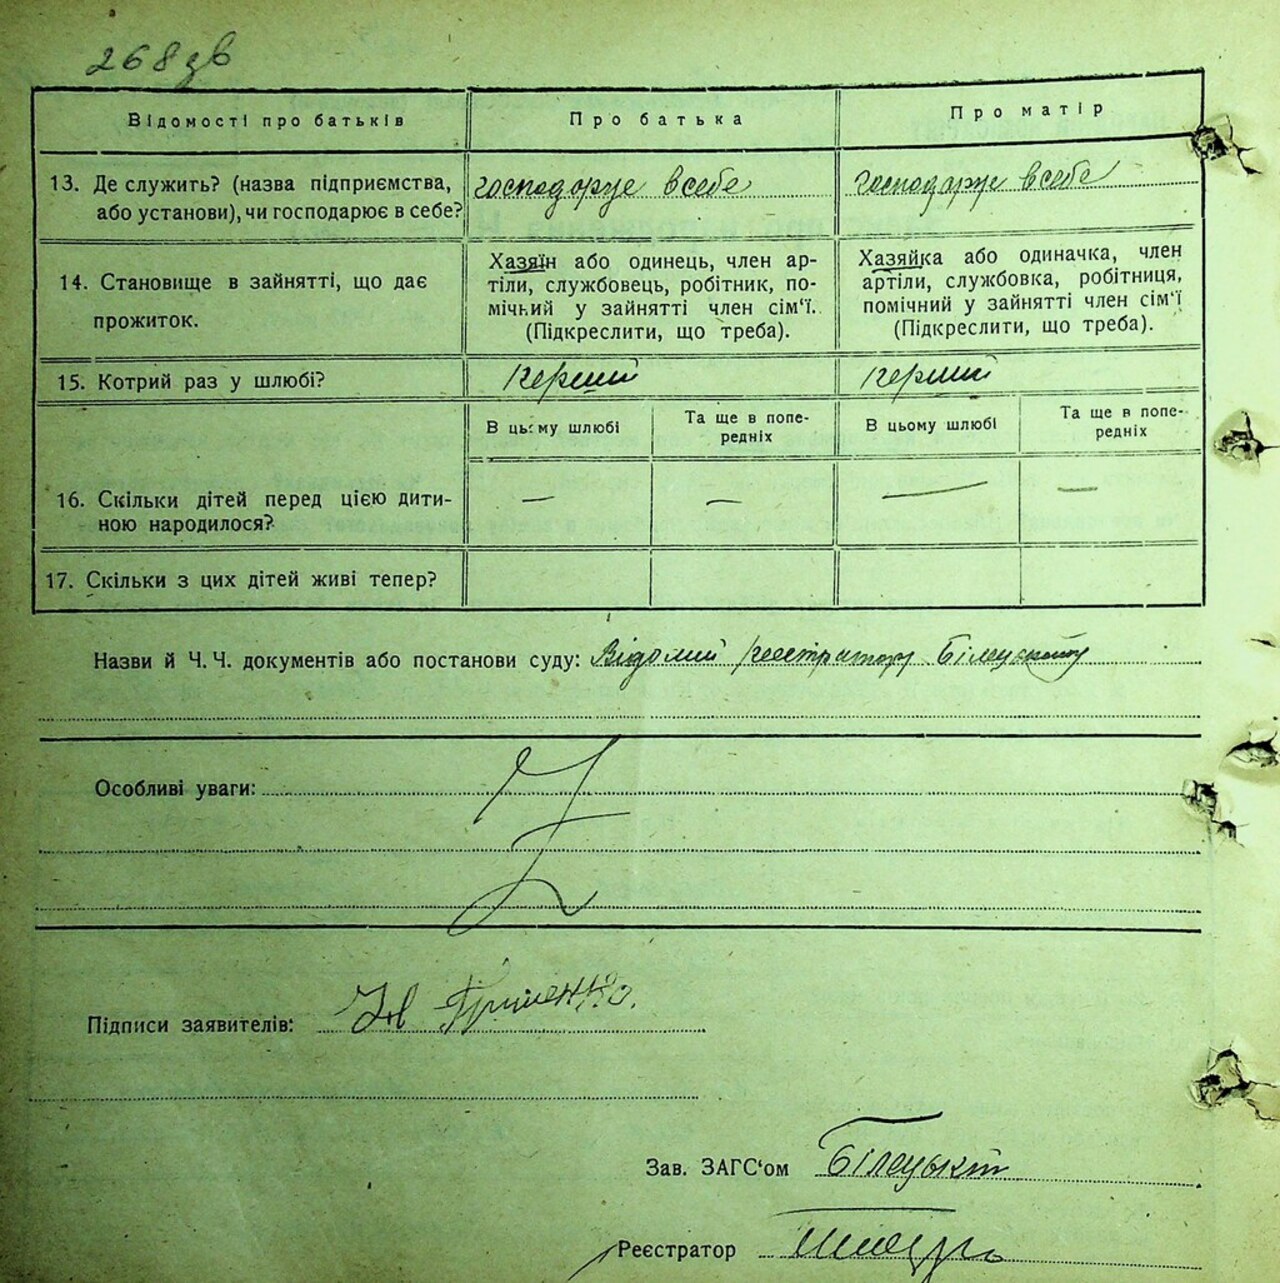 268 зв
Відомості про батьків
Про батька
Про матір
13. Де служить? (назва підприємства,
або установи), чи господарює в себе?
господарує в себе
господарує в себе
14. Становище в зайнятті, що дає
прожиток.
Хазяїн або одинець, член ар-
тіли, службовець, робітник, по-
мічний у зайнятті член сім'ї.
(Підкреслити, що треба).
Хазяйка або одиначка, член
артіли, службовка, робітниця,
помічний у зайнятті член сім'ї
(Підкреслити, що треба).
15. Котрий раз у шлюбі?
перший
перший
В цьому шлюбі
Та ще в попе-
редніх
В цьому шлюбі
Та ще в попе-
редніх
16. Скільки дітей перед цією дити-
ною народилося?
—
—
—
—
17. Скільки з цих дітей живі тепер?
Назви й Ч. Ч. документів або постанови суду: Відомий реєстратору Білецькому
Особливі уваги:
Підписи заявителів: Ів Гриненко.
Зав. ЗАГС'ом Білецький
Реєстратор